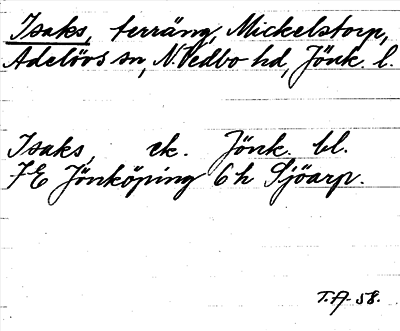 Isaks, terräng, Mickelstorp,
Adelövs sn, N. Vedbo hd, Jönk. l.
Isaks, ek. Jönk. bl.
7E Jönköping 6h Sjöarp.
T.A. 58.